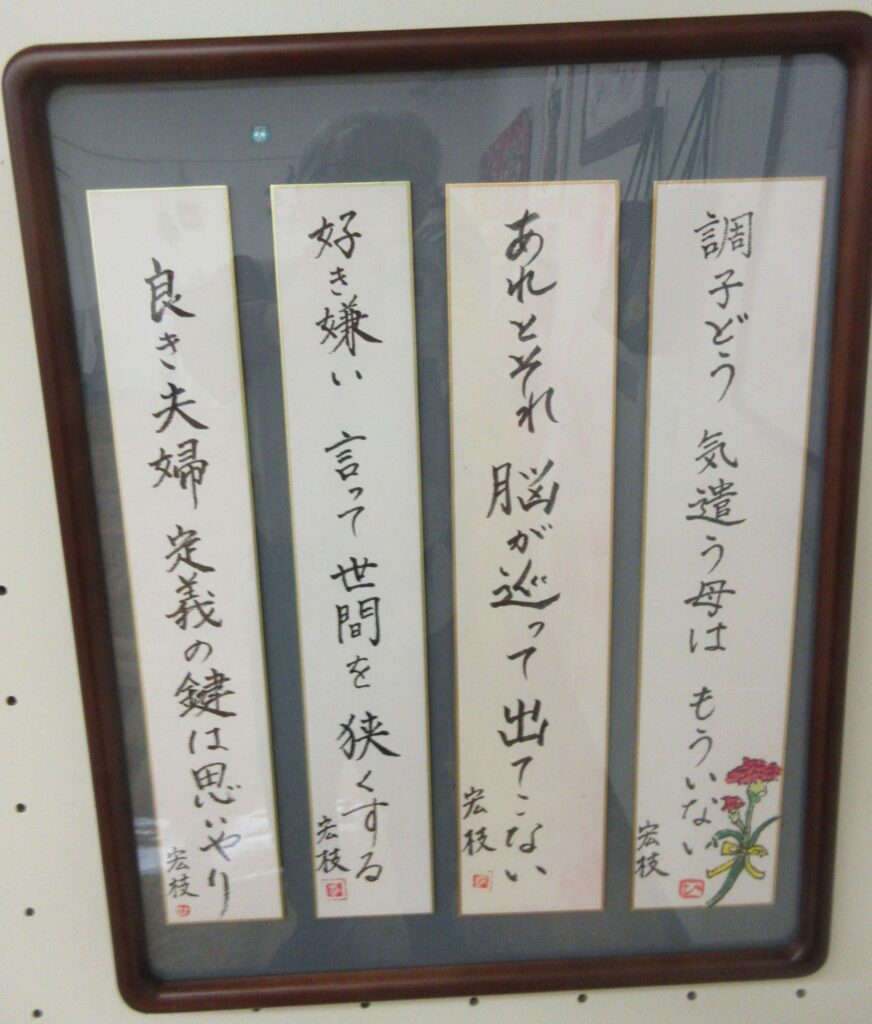 調子どう 気遣う母は もういない
宏枝
あれとそれ 脳が巡って 出てこない
宏枝
好き嫌い 言って世間を 狭くする
宏枝
良き夫婦 定義の鍵は思いやり
宏枝